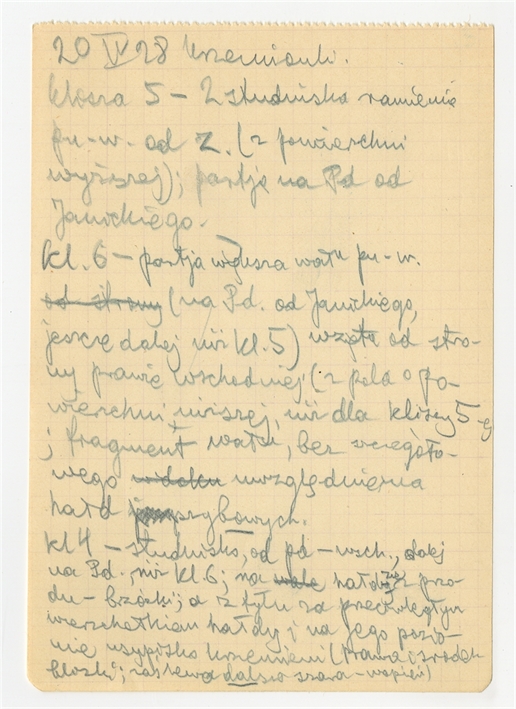 20 IV 28 Krzemionki.
Klisza 5 – Z studniska ramienia
pn-w. od Z. (z powierzchni
wyższej); partja na Pd od
Janickiego.
Kl. 6 – partja wyższa wału pn-w.
od strony (na Pd. od Janickiego,
jeszcze dalej niż kl. 5) wzięta od stro-
ny prawie wschodniej (z pola o po-
wierzchni niższej, niż dla kliszy 5-ej
; fragment wału, bez szczegóło-
wego widoku uwzględnienia
hałd przyszybowych.
kl 4 – studnisko, od pd-wsch., dalej
na Pd., niż kl. 6; na hałdzie z przo-
du – brzózki; a z tyłu za przeciwległym
wierzchołkiem hałdy i na jego pozio-
mie usypisko krzemieni (prawa i środek
kliszki; zaś lewa dalsza szara – wapień)